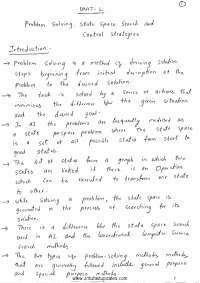 UNIT-2
Problem Solving, State Space Search and
Control Strategies
Introduction:-
→ Problem Solving is a method of deriving solution
steps beginning from initial description of the
problem to the desired solution.
→ The task is solved by a series of actions that
minimizes the difference b/w the given situation
and the desired goal.
→ In AI the problems are frequently modelled as
a state space problem where the state space
is a set of all possible states from start to
goal states.
→ The set of states form a graph in which two
states are linked if there is an operation
which can be executed to transform one state
to other.
→ while solving a problem, the state space is
generated in the process of searching for its
solution.
→ There is a difference b/w the state space search
used in AI and the conventional computer science
search methods.
→ The two types of problem-solving methods
that are generally followed include general purpose
and special purpose methods.